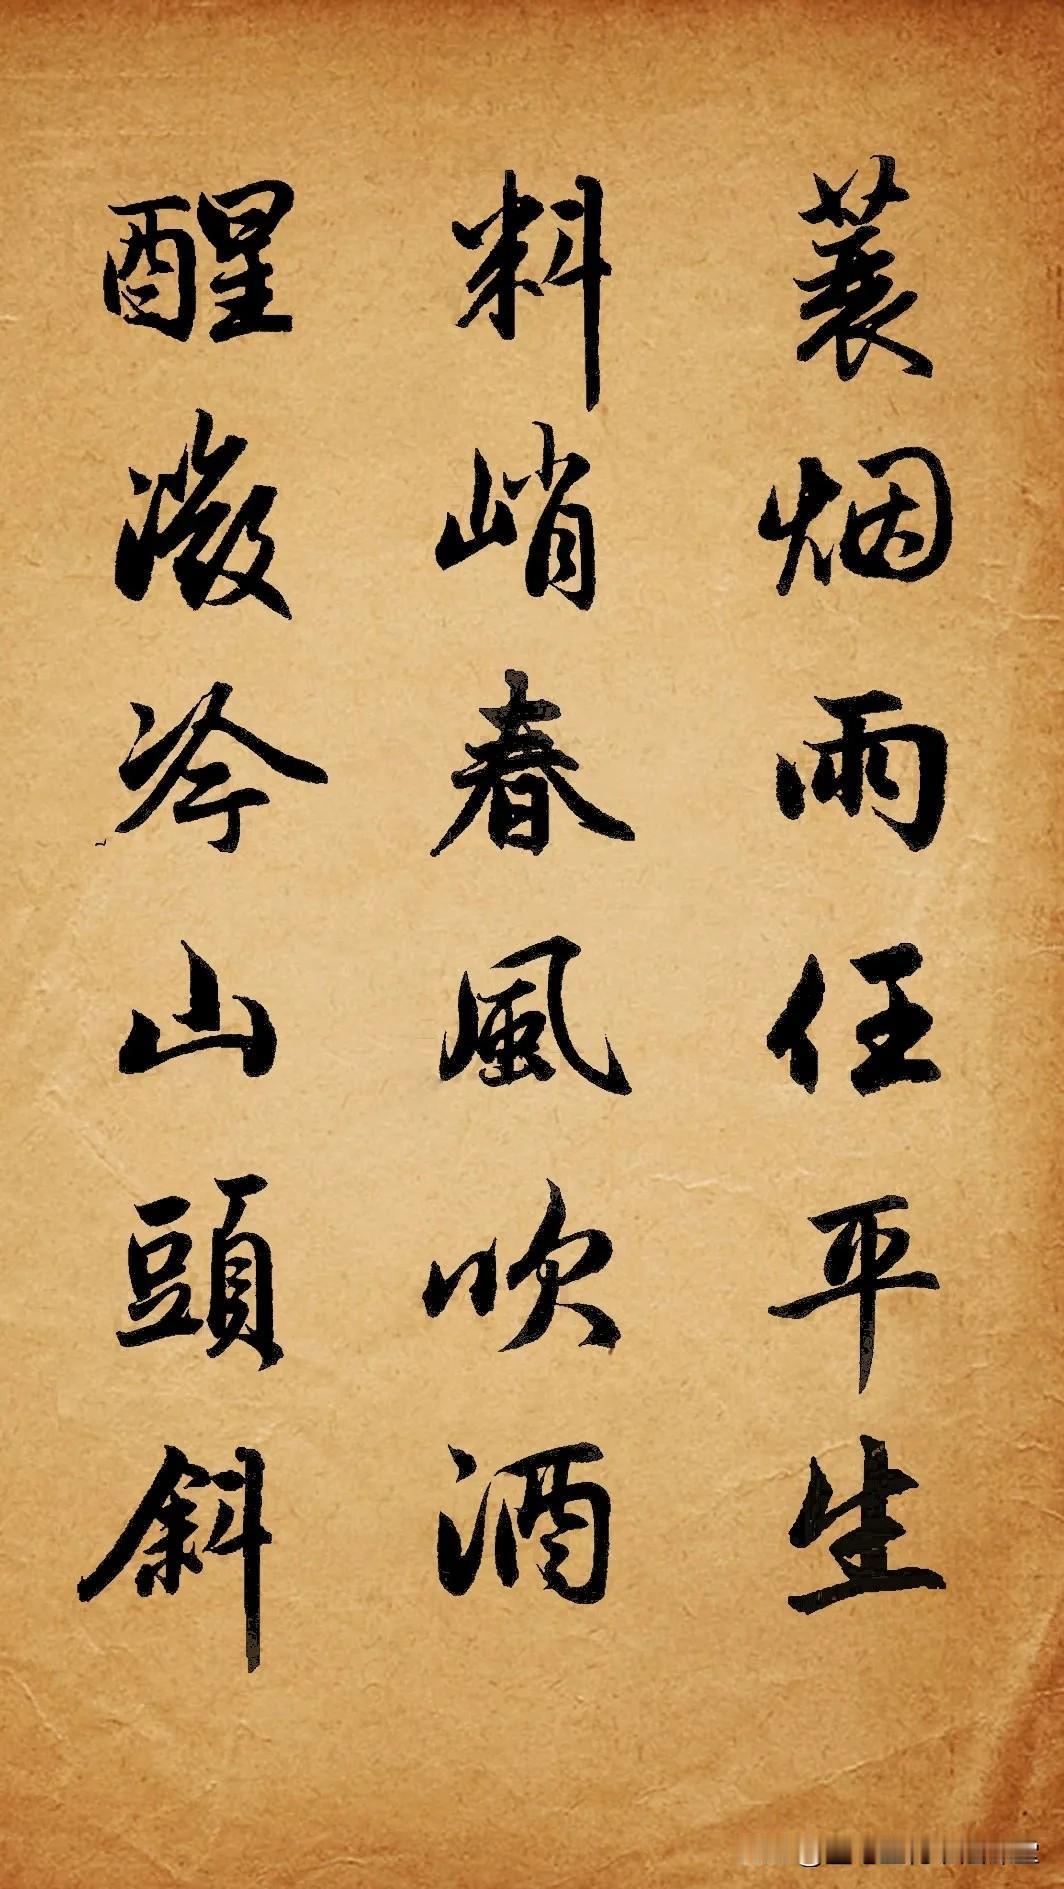 蓑烟雨任平生
料峭春風吹酒
醒微冷山頭斜